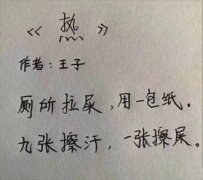 《热》
作者：王子
厕所拉尿，用一包纸。
九张擦汗，一张擦屎。